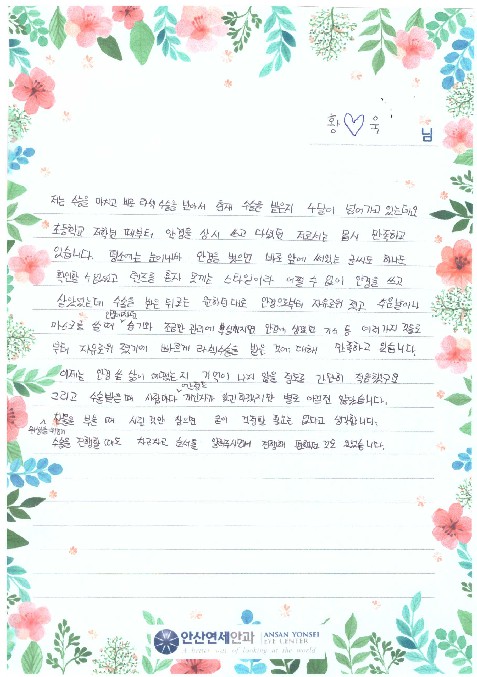 황♡욱
님
저는 수능을 마치고 바로 라식 수술을 받아서 현재 수술을 받은지 4달이 넘어가고 있는데요
초등학교 저학년 때부터 안경을 상시 쓰고 다녔던 저로서는 몹시 만족하고
있습니다. 평소에는 눈이 나빠 안경을 벗으면 바로 앞에 써있는 글씨도 하나도
확인할 수 없었고 렌즈를 혼자 못끼는 스타일이라 어쩔 수 없이 안경을 쓰고
살았었는데 수술을 받은 뒤로는 원하던 대로 안경으로부터 자유로워 졌고 수영장이나
마스크를 쓸 때 습기와 조금만 관리에 안경에 기스 등 여러가지 것들로
부터 자유로워 졌기에 빠르게 라식수술을 받은 것에 대해 만족하고 있습니다.
이제는 안경 쓴 삶이 어땠는지 기억이 나지 않을 정도로 간단히 적응했구요
그리고 수술받을 때 사람마다 개인차가 있긴 하겠지만 별로 아프진 않았습니다.
눈 때 시간 것만 참으면 굳이 걱정할 필요는 없다고 생각합니다.
수술을 진행할 때도 차근차근 순서를 진행해 것도 있었습니다.
안산연세안과 ANSAN YONSEI
EYE CENTER
A better way of looking at the world